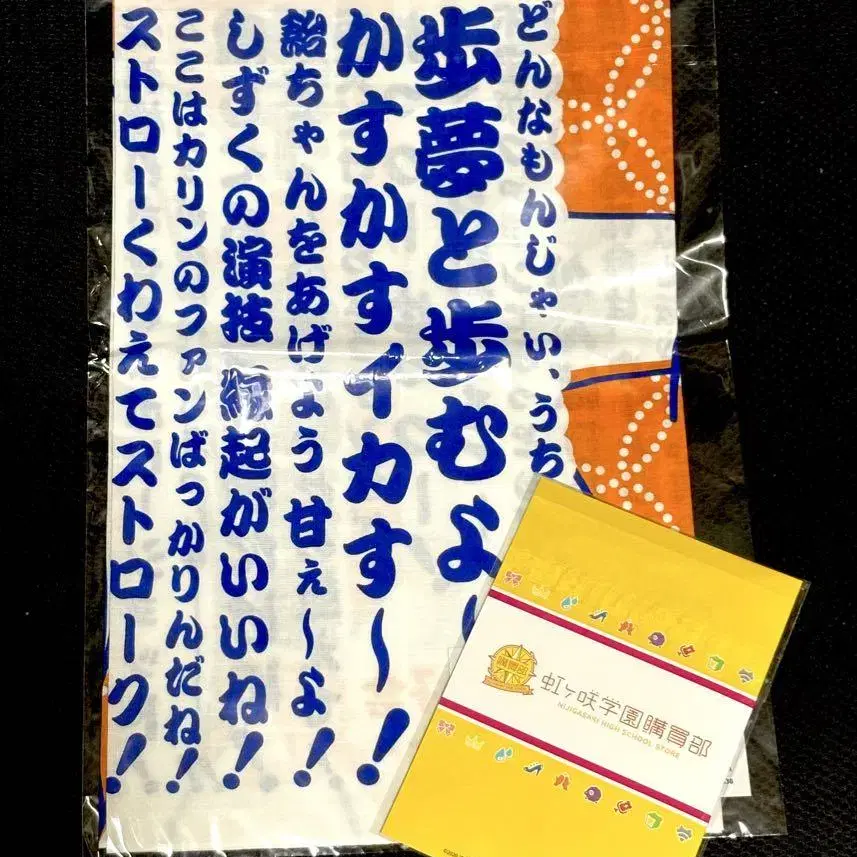 どんなもんじゃい、うち
歩夢と歩むよ〜
かすかすイカす〜!
飴ちゃんをあげよう 甘ぇ〜よ!
しずくの演技 縁起がいいね!
ここはカリンのファンばっかりんだね!
ストローくわえてストローク!
虹ヶ咲学園購買部
NIJIGASAKI HIGH SCHOOL STORE